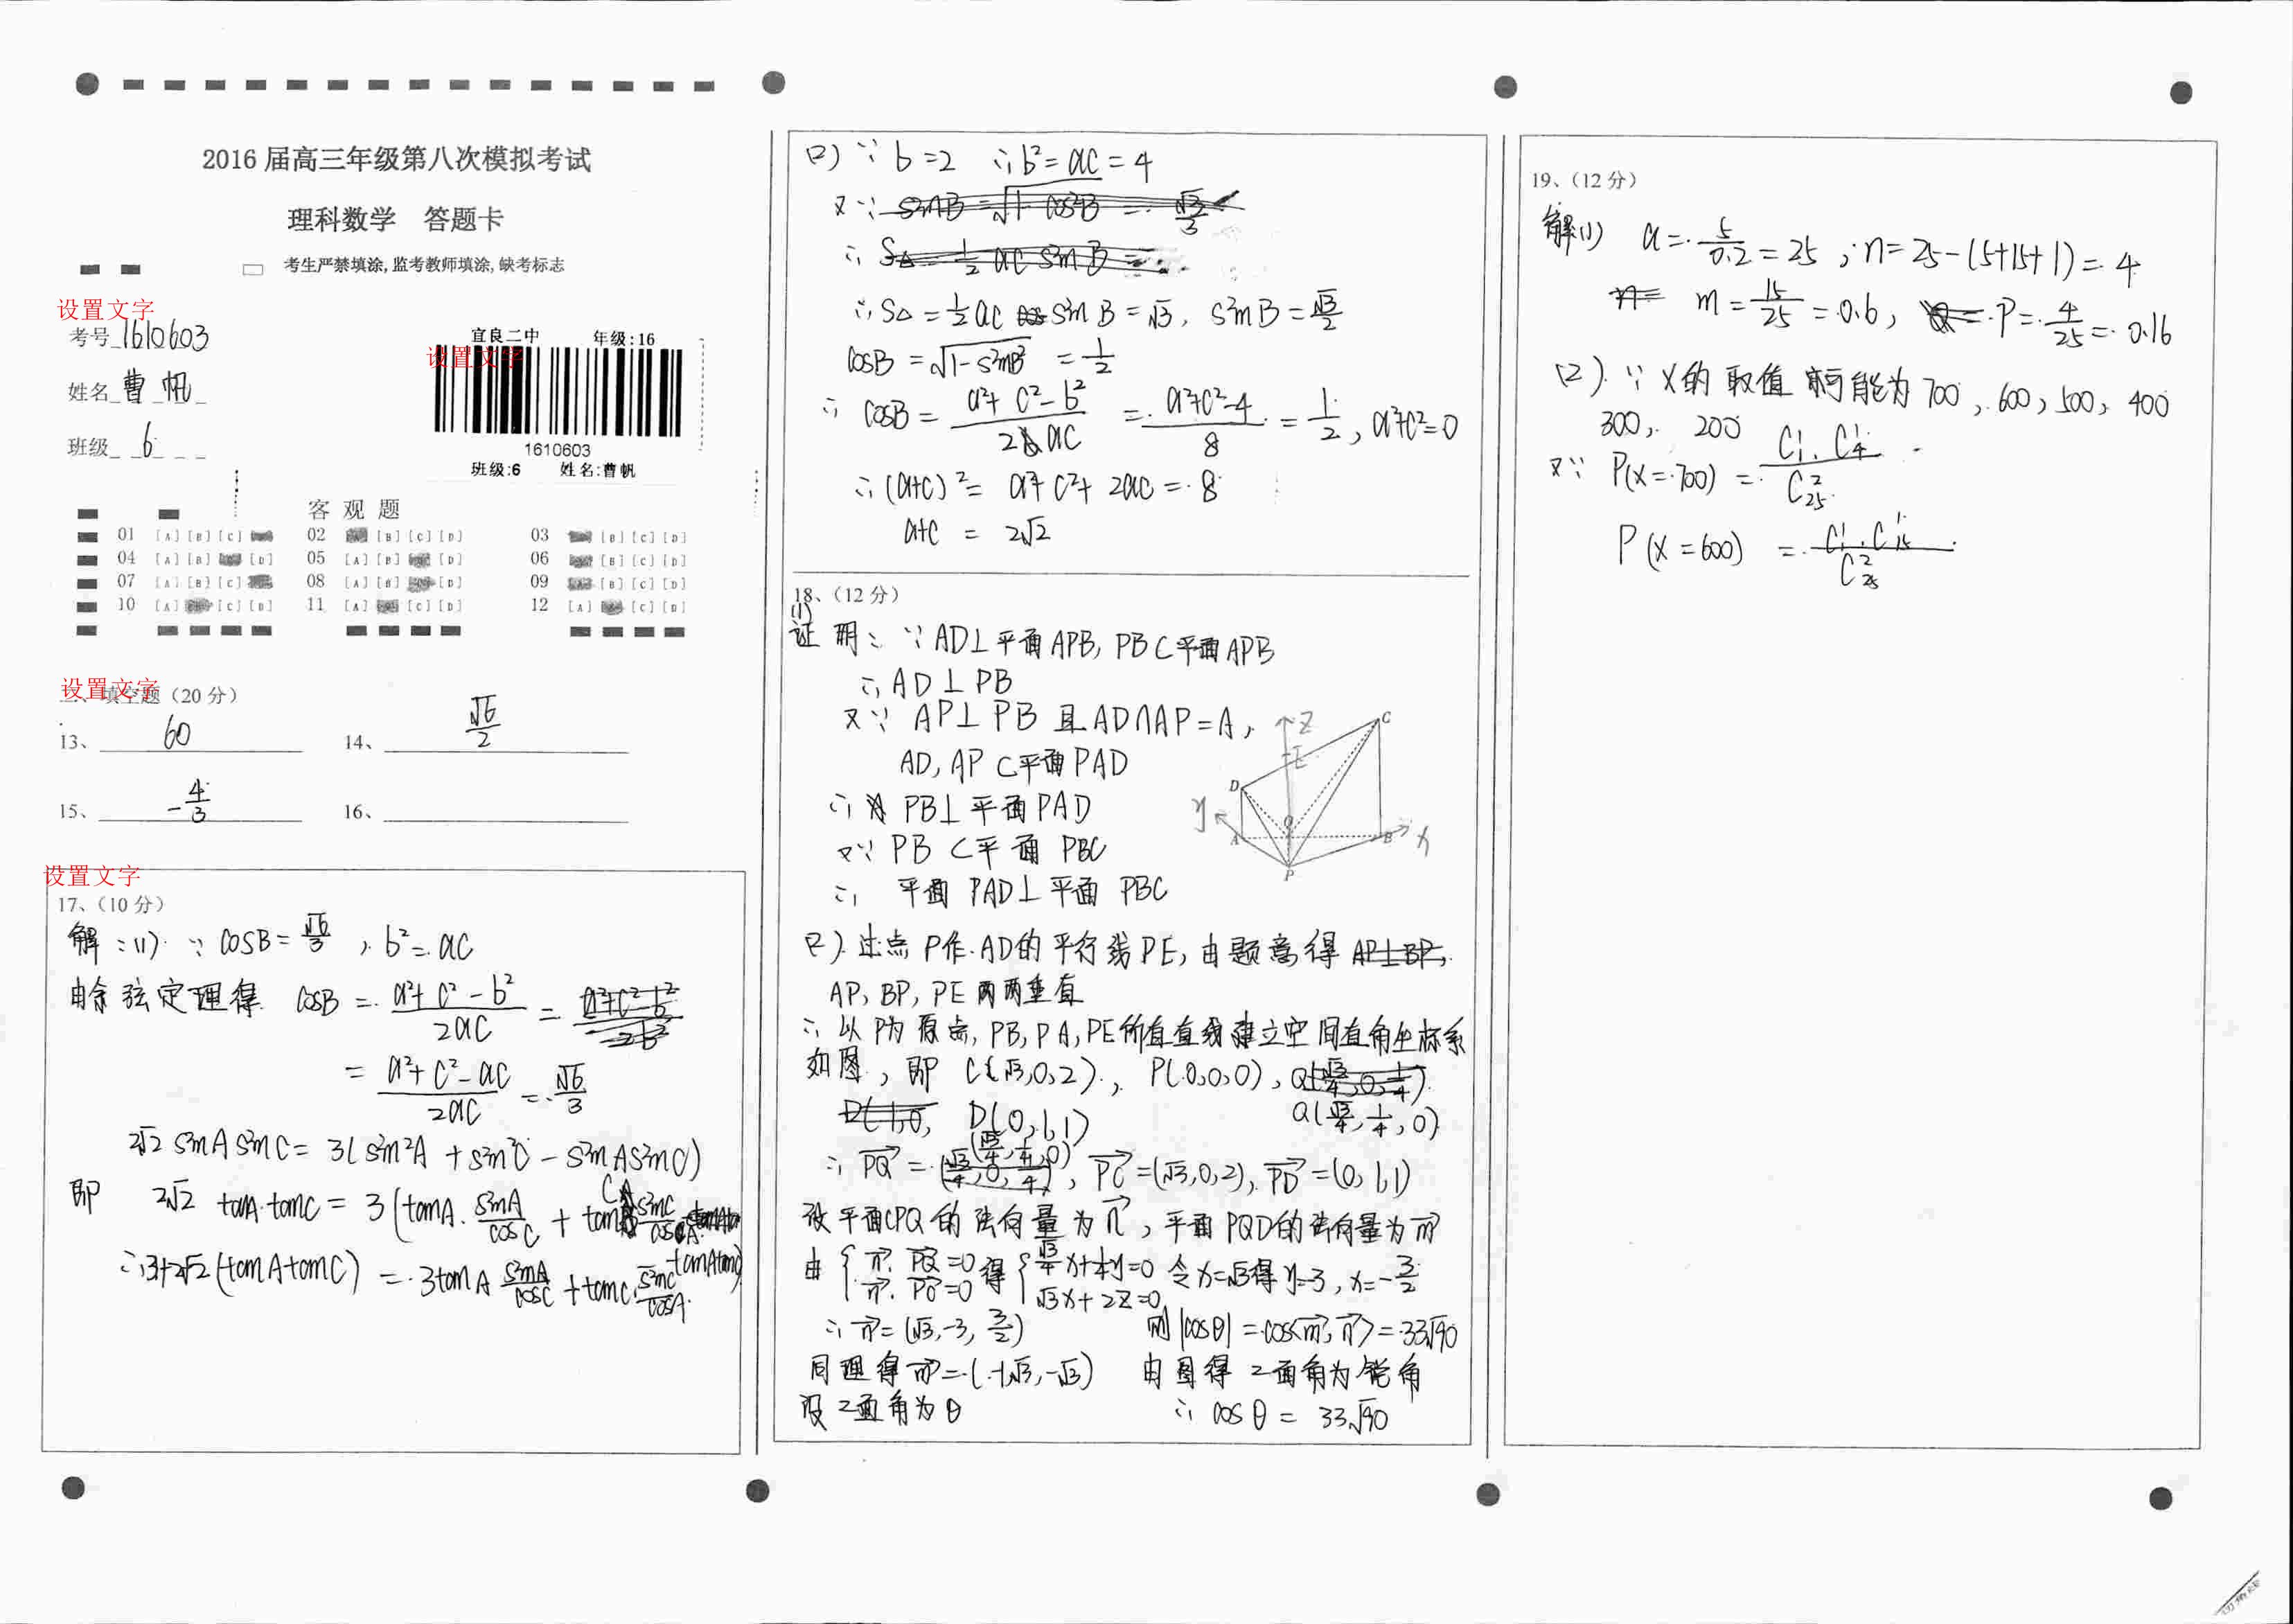 2016届高三年级第八次模拟考试
理科数学 答题卡
考生严禁填涂,监考教师填涂,缺考标志
设置文字
考号 1610603
姓名 曹帆
班级 6
宜良二中 年级:16
设置文字
1610603
班级:6 姓名:曹帆
客观题
01 [A][B][C] 02 [B][C][D] 03 [B][C][D]
04 [A][B] [D] 05 [A][B] [D] 06 [B][C][D]
07 [A][B][C] 08 [A][B] [D] 09 [B][C][D]
10 [A] [C][D] 11 [A] [C][D] 12 [A] [C][D]
设置文字
二、填空题(20分)
13、60 14、√6/2
15、-4/3 16、
设置文字
17、(10分)
解:(1) ∵ cosB=√6/3 , b²=ac
由余弦定理得 cosB = (a²+c²-b²)/2ac =
= (a²+c²-ac)/2ac = √6/3
2√2 sinAsinC= 3(sin²A +sin²C -sinAsinC)
即 2√2 tanA·tanC = 3(tanA·sinA/cosC + tanC sinC/cosA -tanAtanC)
∴3+2√2(tanAtanC) = 3tanA sinA/cosC +tanC·sinC/cosA
(2) ∵ b=2 ∴b²=ac=4
又∵ sinB=√(1-cos²B) = √3/3
∴ S△=1/2 ac sinB =
∴S△=1/2 ac sinB=√3, sinB=√3/2
cosB=√(1-sinB²) =1/2
∴ cosB= (a²+c²-b²)/2ac = (a²+c²-4)/8 = 1/2, a²+c²=0
∴(a+c)²= a²+c²+2ac = 8
a+c = 2√2
18、(12分)
(1)
证明: ∵ AD⊥平面APB, PB⊂平面APB
∴AD⊥PB
又∵ AP⊥PB 且AD∩AP=A,
AD,AP⊂平面PAD
∴ PB⊥平面PAD
又∵ PB⊂平面 PBC
∴ 平面 PAD⊥平面 PBC
z
C
E
D
y
Q
A
B
x
P
(2) 过点P作AD的平行线PE,由题意得 AP⊥BP,
AP, BP, PE两两垂直
∴以P为原点, PB,PA,PE所在直线建立空间直角坐标系
如图, 即 C(√3,0,2), P(0,0,0), Q(√3/4,0,1/4)
D(1,0, D(0,1,1) Q(√3/4,1/4,0)
∴ PQ=(√3/4,1/4,0), PC=(√3,0,2), PD=(0,1,1)
设平面CPQ的法向量为n, 平面PQD的法向量为m
由{n·PQ=0 n·PC=0 得{√3/4x+1/4y=0 √3x+2z=0 令x=√3得y=3, x=-3/2
∴n=(√3,-3,3/2) 则|cosθ|=cos<m,n>=33√90
同理得m=(-1,√3,-√3) 由图得二面角为锐角
设二面角为θ ∴ cosθ= 33√90
19、(12分)
解(1) a=5/0.2=25 ; n=25-(5+15+1)=4
m=15/25=0.6, P=4/25=0.16
(2) ∵ X的取值可能为700, 600, 500, 400
300, 200
又∵ P(X=700) = C¹₁·C¹₄/C²₂₅
P(X=600) = C¹₁·C¹₁₅/C²₂₅